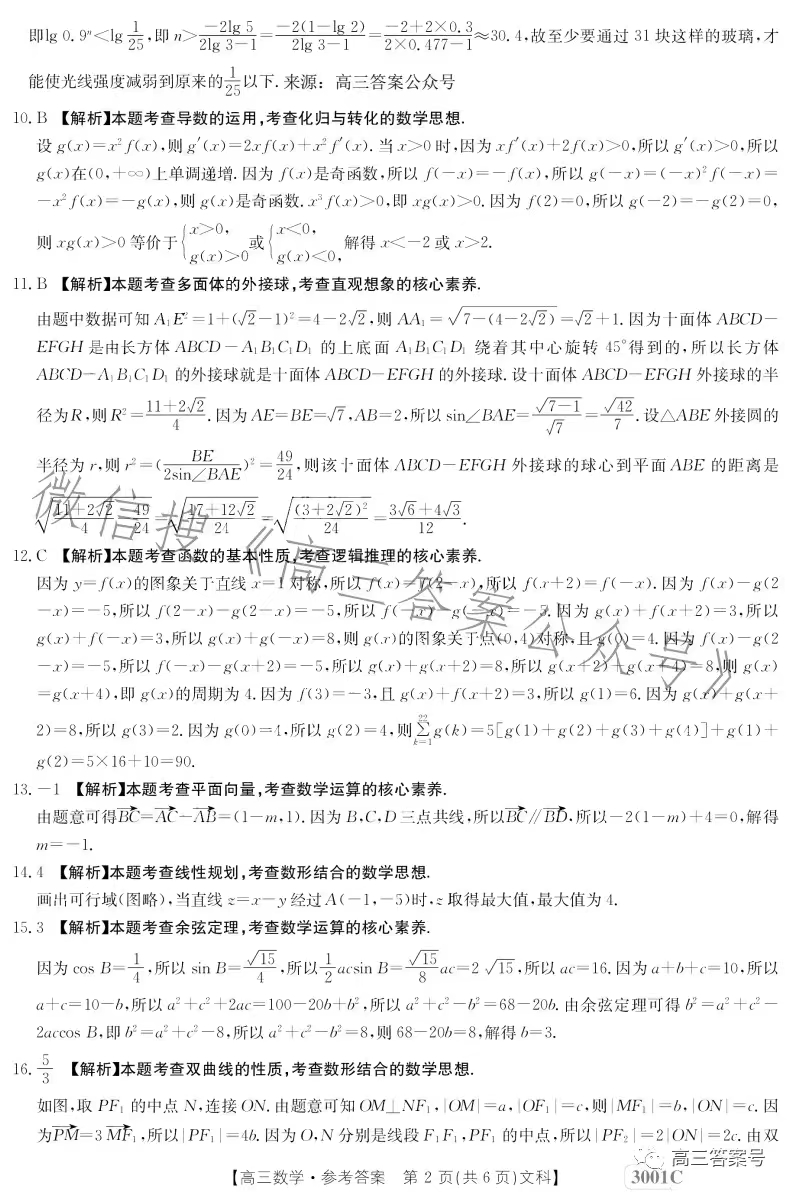 即lg 0.9ⁿ<lg 1/25,即 n>(-2lg 5)/(2lg 3-1)=(-2(1-lg 2))/(2lg 3-1)=(-2+2×0.3)/(2×0.477-1)≈30.4,故至少要通过 31 块这样的玻璃,才
能使光线强度减弱到原来的1/25以下. 来源：高三答案公众号
10. B 【解析】本题考查导数的运用,考查化归与转化的数学思想.
设 g(x)=x²f(x),则 g′(x)=2xf(x)+x²f′(x). 当 x>0 时,因为 xf′(x)+2f(x)>0,所以 g′(x)>0,所以
g(x)在(0,+∞)上单调递增. 因为 f(x)是奇函数,所以 f(-x)=-f(x),所以 g(-x)=(-x)²f(-x)=
-x²f(x)=-g(x),则 g(x)是奇函数. x³f(x)>0,即 xg(x)>0. 因为 f(2)=0,所以 g(-2)=-g(2)=0,
则 xg(x)>0 等价于{x>0, g(x)>0 或{x<0, g(x)<0, 解得 x<-2 或 x>2.
11. B 【解析】本题考查多面体的外接球,考查直观想象的核心素养.
由题中数据可知 A₁E²=1+(√2-1)²=4-2√2,则 AA₁=√(7-(4-2√2))=√2+1. 因为十面体 ABCD-
EFGH 是由长方体 ABCD-A₁B₁C₁D₁ 的上底面 A₁B₁C₁D₁ 绕着其中心旋转 45°得到的,所以长方体
ABCD-A₁B₁C₁D₁ 的外接球就是十面体 ABCD-EFGH 的外接球. 设十面体 ABCD-EFGH 外接球的半
径为R,则 R²=(11+2√2)/4. 因为 AE=BE=√7,AB=2,所以 sin∠BAE=√(7-1)/√7=√42/7. 设△ABE 外接圆的
半径为 r,则 r²=(BE/(2sin∠BAE))²=49/24,则该十面体 ABCD-EFGH 外接球的球心到平面 ABE 的距离是
√((11+2√2)/4-49/24)=√((17+12√2)/24)=√((3+2√2)²/24)=(3√6+4√3)/12.
12. C 【解析】本题考查函数的基本性质,考查逻辑推理的核心素养.
因为 y=f(x)的图象关于直线 x=1 对称,所以 f(x)=f(2-x),所以 f(x+2)=f(-x). 因为 f(x)-g(2
-x)=-5,所以 f(2-x)-g(2-x)=-5,所以 f(-x)-g(-x)=-5. 因为 g(x)+f(x+2)=3,所以
g(x)+f(-x)=3,所以 g(x)+g(-x)=8,则 g(x)的图象关于点(0,4)对称,且 g(0)=4. 因为 f(x)-g(2
-x)=-5,所以 f(-x)-g(x+2)=-5,所以 g(x)+g(x+2)=8,所以 g(x+2)+g(x+4)=8,则 g(x)
=g(x+4),即 g(x)的周期为 4. 因为 f(3)=-3,且 g(x)+f(x+2)=3,所以 g(1)=6. 因为 g(x)+g(x+
2)=8,所以 g(3)=2. 因为 g(0)=4,所以 g(2)=4,则∑(k=1→22)g(k)=5[g(1)+g(2)+g(3)+g(4)]+g(1)+
g(2)=5×16+10=90.
13. -1 【解析】本题考查平面向量,考查数学运算的核心素养.
由题意可得BC→=AC→-AB→=(1-m,1). 因为 B,C,D 三点共线,所以BC→∥BD→,所以-2(1-m)+4=0,解得
m=-1.
14. 4 【解析】本题考查线性规划,考查数形结合的数学思想.
画出可行域(图略),当直线 z=x-y 经过 A(-1,-5)时,z 取得最大值,最大值为 4.
15. 3 【解析】本题考查余弦定理,考查数学运算的核心素养.
因为 cos B=1/4,所以 sin B=√15/4,所以1/2acsin B=√15/8ac=2√15,所以 ac=16. 因为 a+b+c=10,所以
a+c=10-b,所以 a²+c²+2ac=100-20b+b²,所以 a²+c²-b²=68-20b. 由余弦定理可得 b²=a²+c²-
2accos B,即 b²=a²+c²-8,所以 a²+c²-b²=8,则 68-20b=8,解得 b=3.
16. 5/3 【解析】本题考查双曲线的性质,考查数形结合的数学思想.
如图,取 PF₁ 的中点 N,连接 ON. 由题意可知 OM⊥NF₁,|OM|=a,|OF₁|=c,则|MF₁|=b,|ON|=c. 因
为PM→=3MF₁→,所以|PF₁|=4b. 因为 O,N 分别是线段 F₁F₁,PF₁ 的中点,所以|PF₂|=2|ON|=2c. 由双
【高三数学·参考答案 第 2 页(共 6 页)文科】 3001C
微信搜《高三答案公众号》
高三答案号